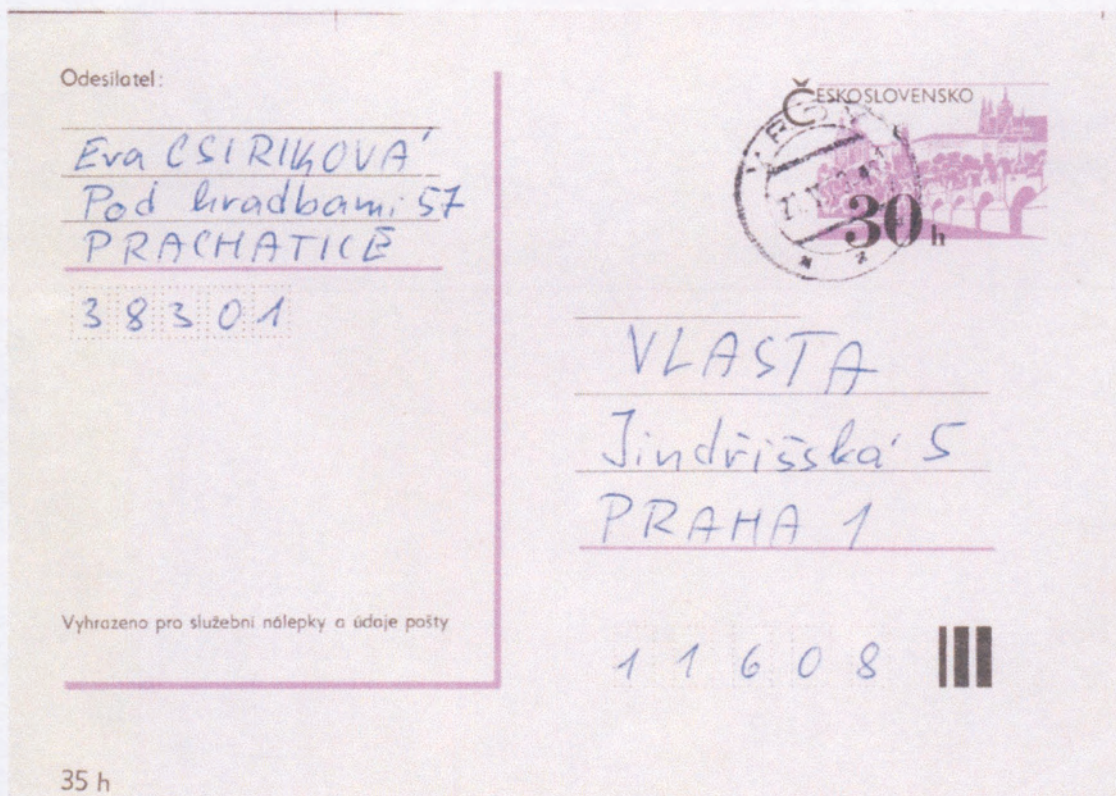 Odesílatel:
Eva CSIRIKOVÁ
Pod hradbami 57
PRACHATICE
38301
Vyhrazeno pro služební nálepky a údaje pošty
35 h
ČESKOSLOVENSKO
30 h
VLASTA
Jindřišská 5
PRAHA 1
11608